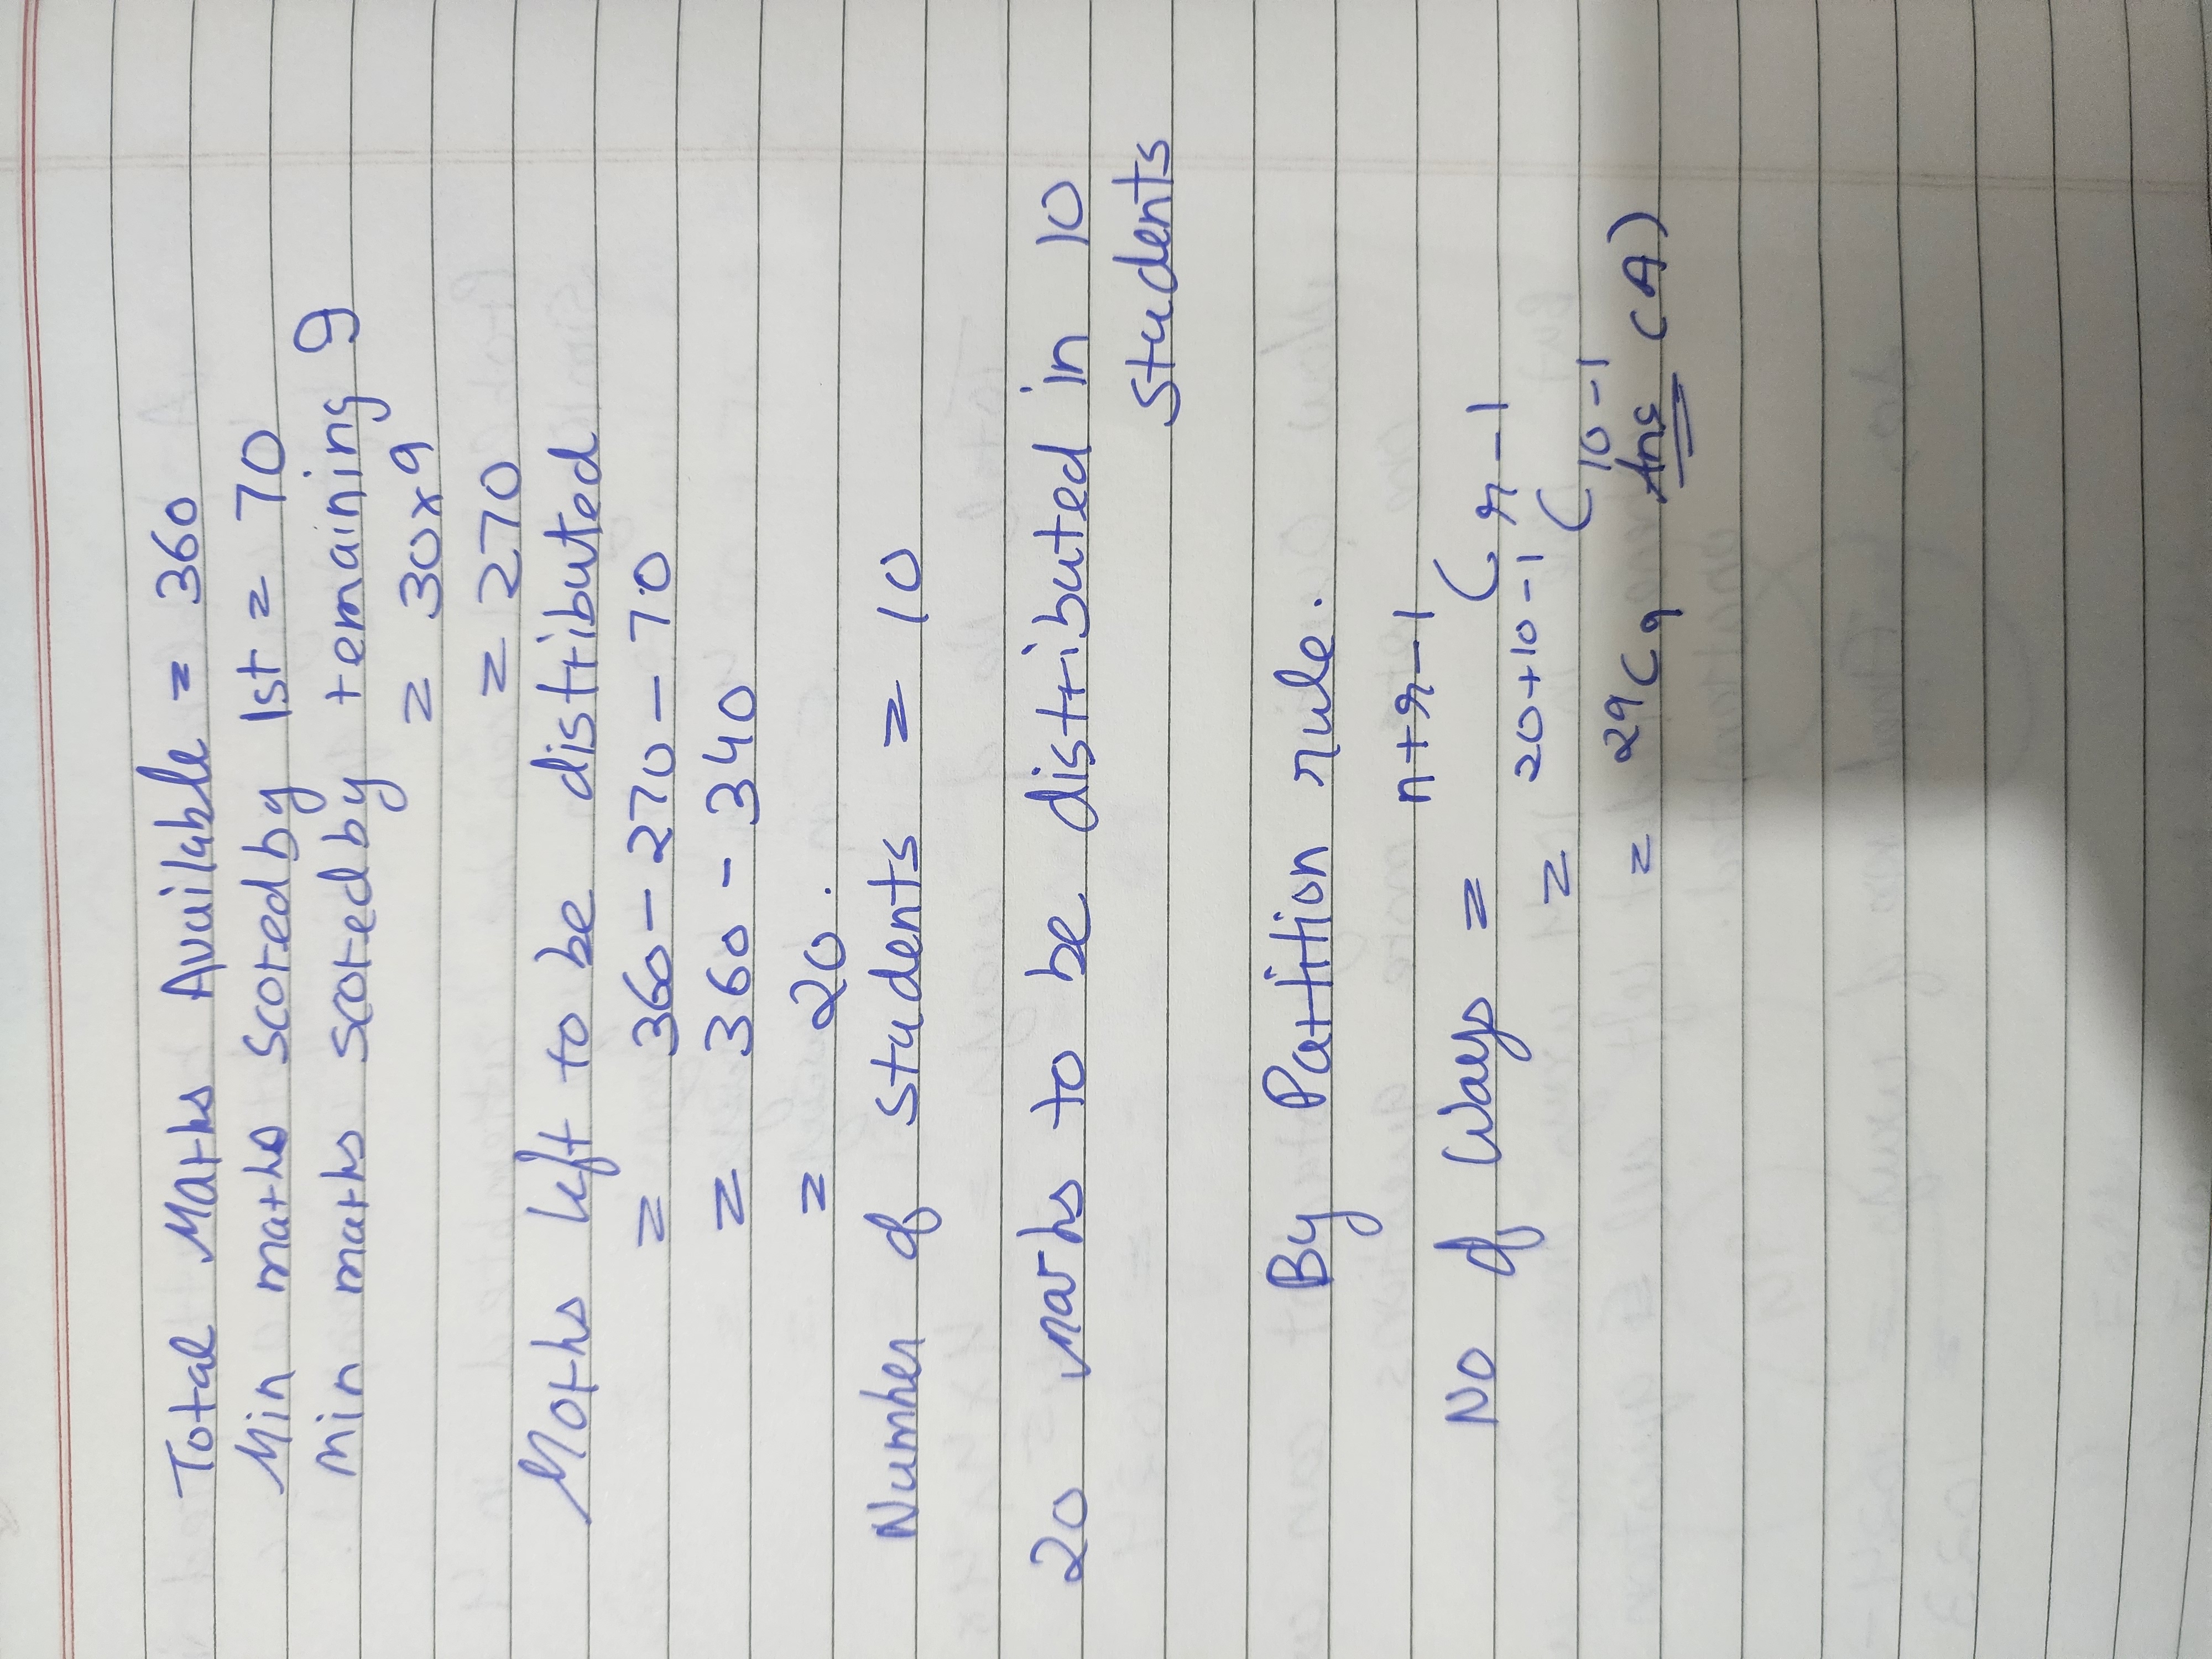 Total Marks Available = 360
Min marks scored by 1st = 70
Min marks scored by remaining 9
= 30x9
= 270
Marks left to be distributed
= 360-270-70
= 360-340
= 20.
Number of students = 10
20 marks to be distributed in 10
students
By Partition rule.
No of ways = n+r-1 C r-1
= 20+10-1 C 10-1
= 29C9 Ans (A)